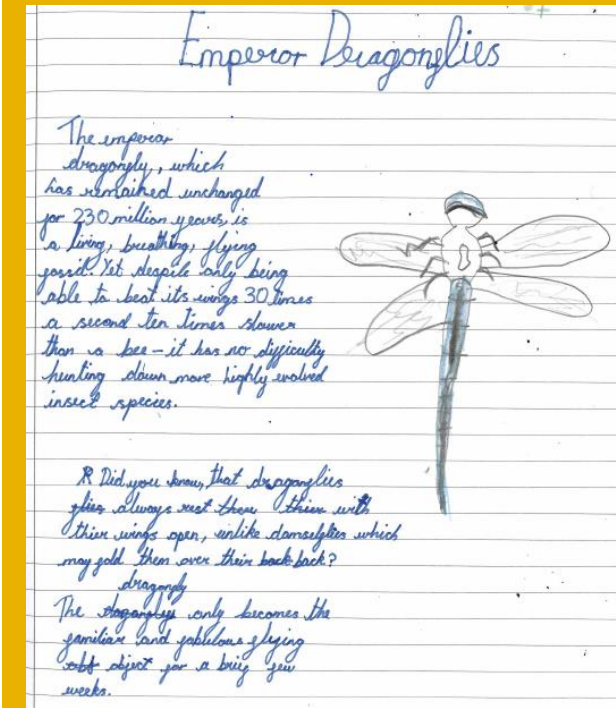 Emperor Dragonflies
The emperor
dragonfly, , which
has remained unchanged
for 230 million years, is
a living, breathing, flying
fossil. Yet despite only being
able to beat its wings 30 times
a second ten times slower
than a bee – it has no difficulty
hunting down more highly evolved
insect species.
R Did you know, that dragonflies
flies always rest there thier with
thier wings open, unlike damselflies which
may fold them over their back back?
dragonfly
The dragonflys only becomes the
familiar and fabulous flying
object for a brief few
weeks.